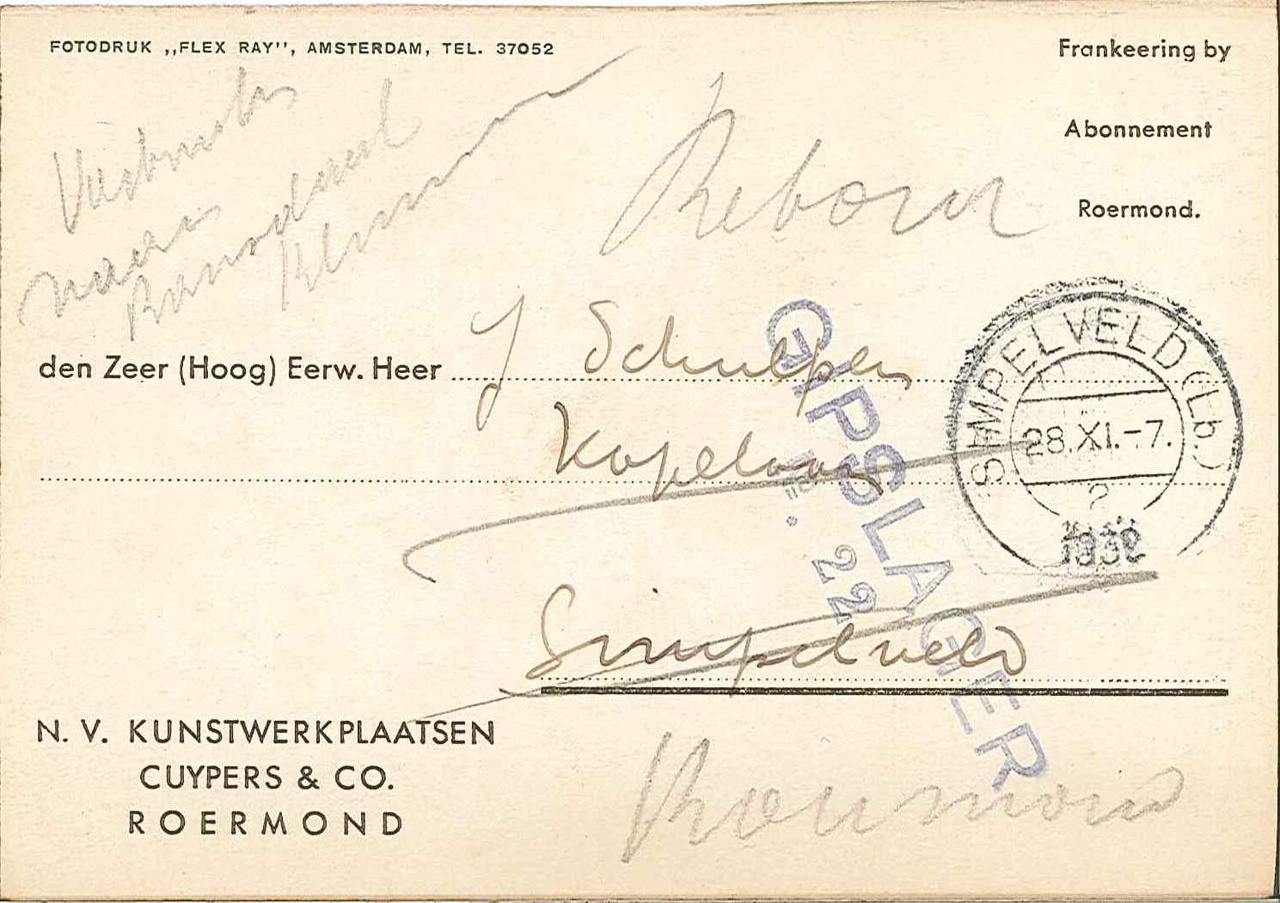 FOTODRUK ,,FLEX RAY'', AMSTERDAM, TEL. 37052
Frankeering by
Abonnement
Roermond.
naar
Ransdaal
Klimmen
Retour
den Zeer (Hoog) Eerw. Heer J Schulpen
Kapelaan
Simpelveld
SIMPELVELD (Lb.)
28.XI.-7.
2
1932
GIPSLAGER
Nº. 22
N. V. KUNSTWERKPLAATSEN
CUYPERS & CO.
ROERMOND
Roermond